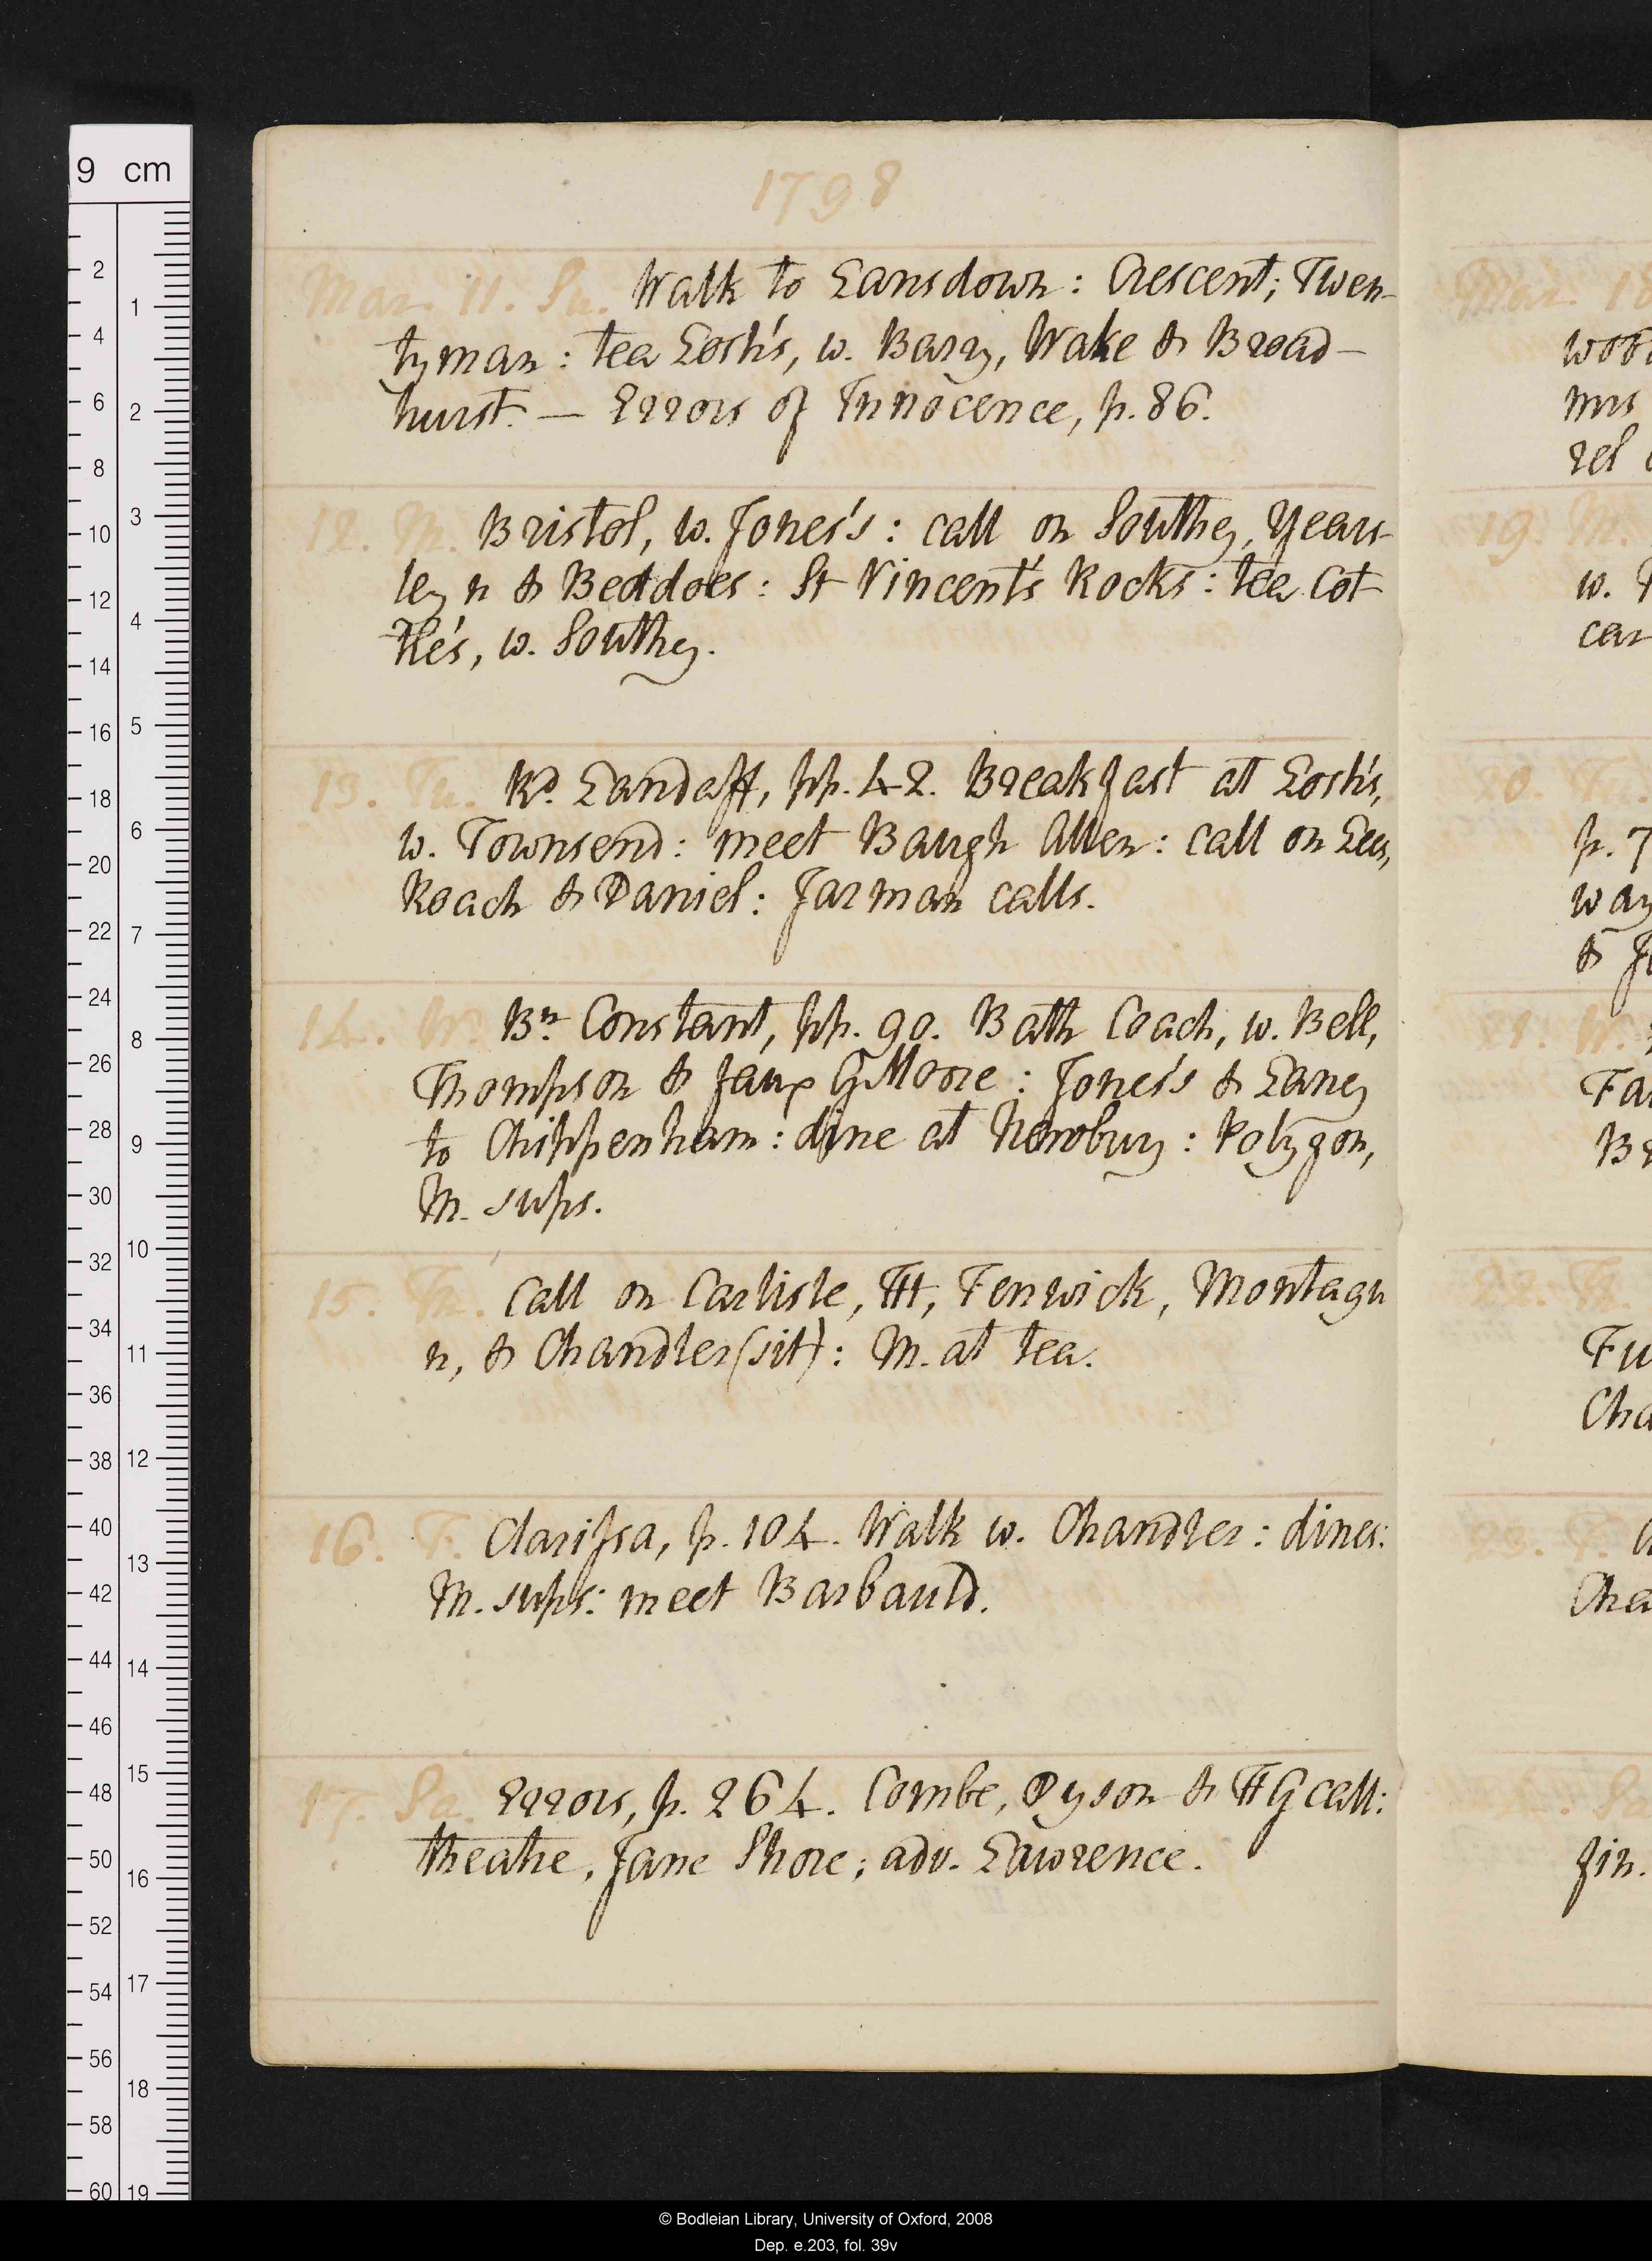 1798
Mar. 11. Su. Walk to Lansdown: Crescent; Twen-
tyman: tea Losh's, w. Barry, Wake & Broad-
hurst. — Errors of Innocence, p. 86.
12. M. Bristol, w. Jones's: call on Southey, Years-
ley n & Beddoes: St Vincent's Rocks: tea Cot-
tle's, w. Southey.
13. Tu. Rd. Landaff, pp. 42. Breakfast at Losh's,
w. Townsend: meet Baugh Allen: call on Lee,
Roach & Daniel: Jarman calls.
14. W. Bn. Constant, pp. 90. Bath Coach, w. Bell,
Thompson & G Moore: Jones's & Laney
to Chippenham: dine at Newbury: Polygon,
M. sups.
15. Th. Call on Carlisle, TH, Fenwick, Montagu
n, & Chandler (sit): M. at tea.
16. F. Clarissa, p. 104. Walk w. Chandler: dines:
M. sups: meet Barbauld.
17. Sa. Errors, p. 264. Combe, Dyson & HG call:
theatre, Jane Shore; adv. Lawrence.
Mar. 18
woo
mrs
rel
19. M.
w.
car
20. T
p. 7
way
&
21. W.
Fa
B
22. T
Fu
Cha
23. F.
Cha
Sa
fin.
9 cm
2
4
6
8
10
12
14
16
18
20
22
24
26
28
30
32
34
36
38
40
42
44
46
48
50
52
54
56
58
60
1
2
3
4
5
6
7
8
9
10
11
12
13
14
15
16
17
18
19
© Bodleian Library, University of Oxford, 2008
Dep. e.203, fol. 39v